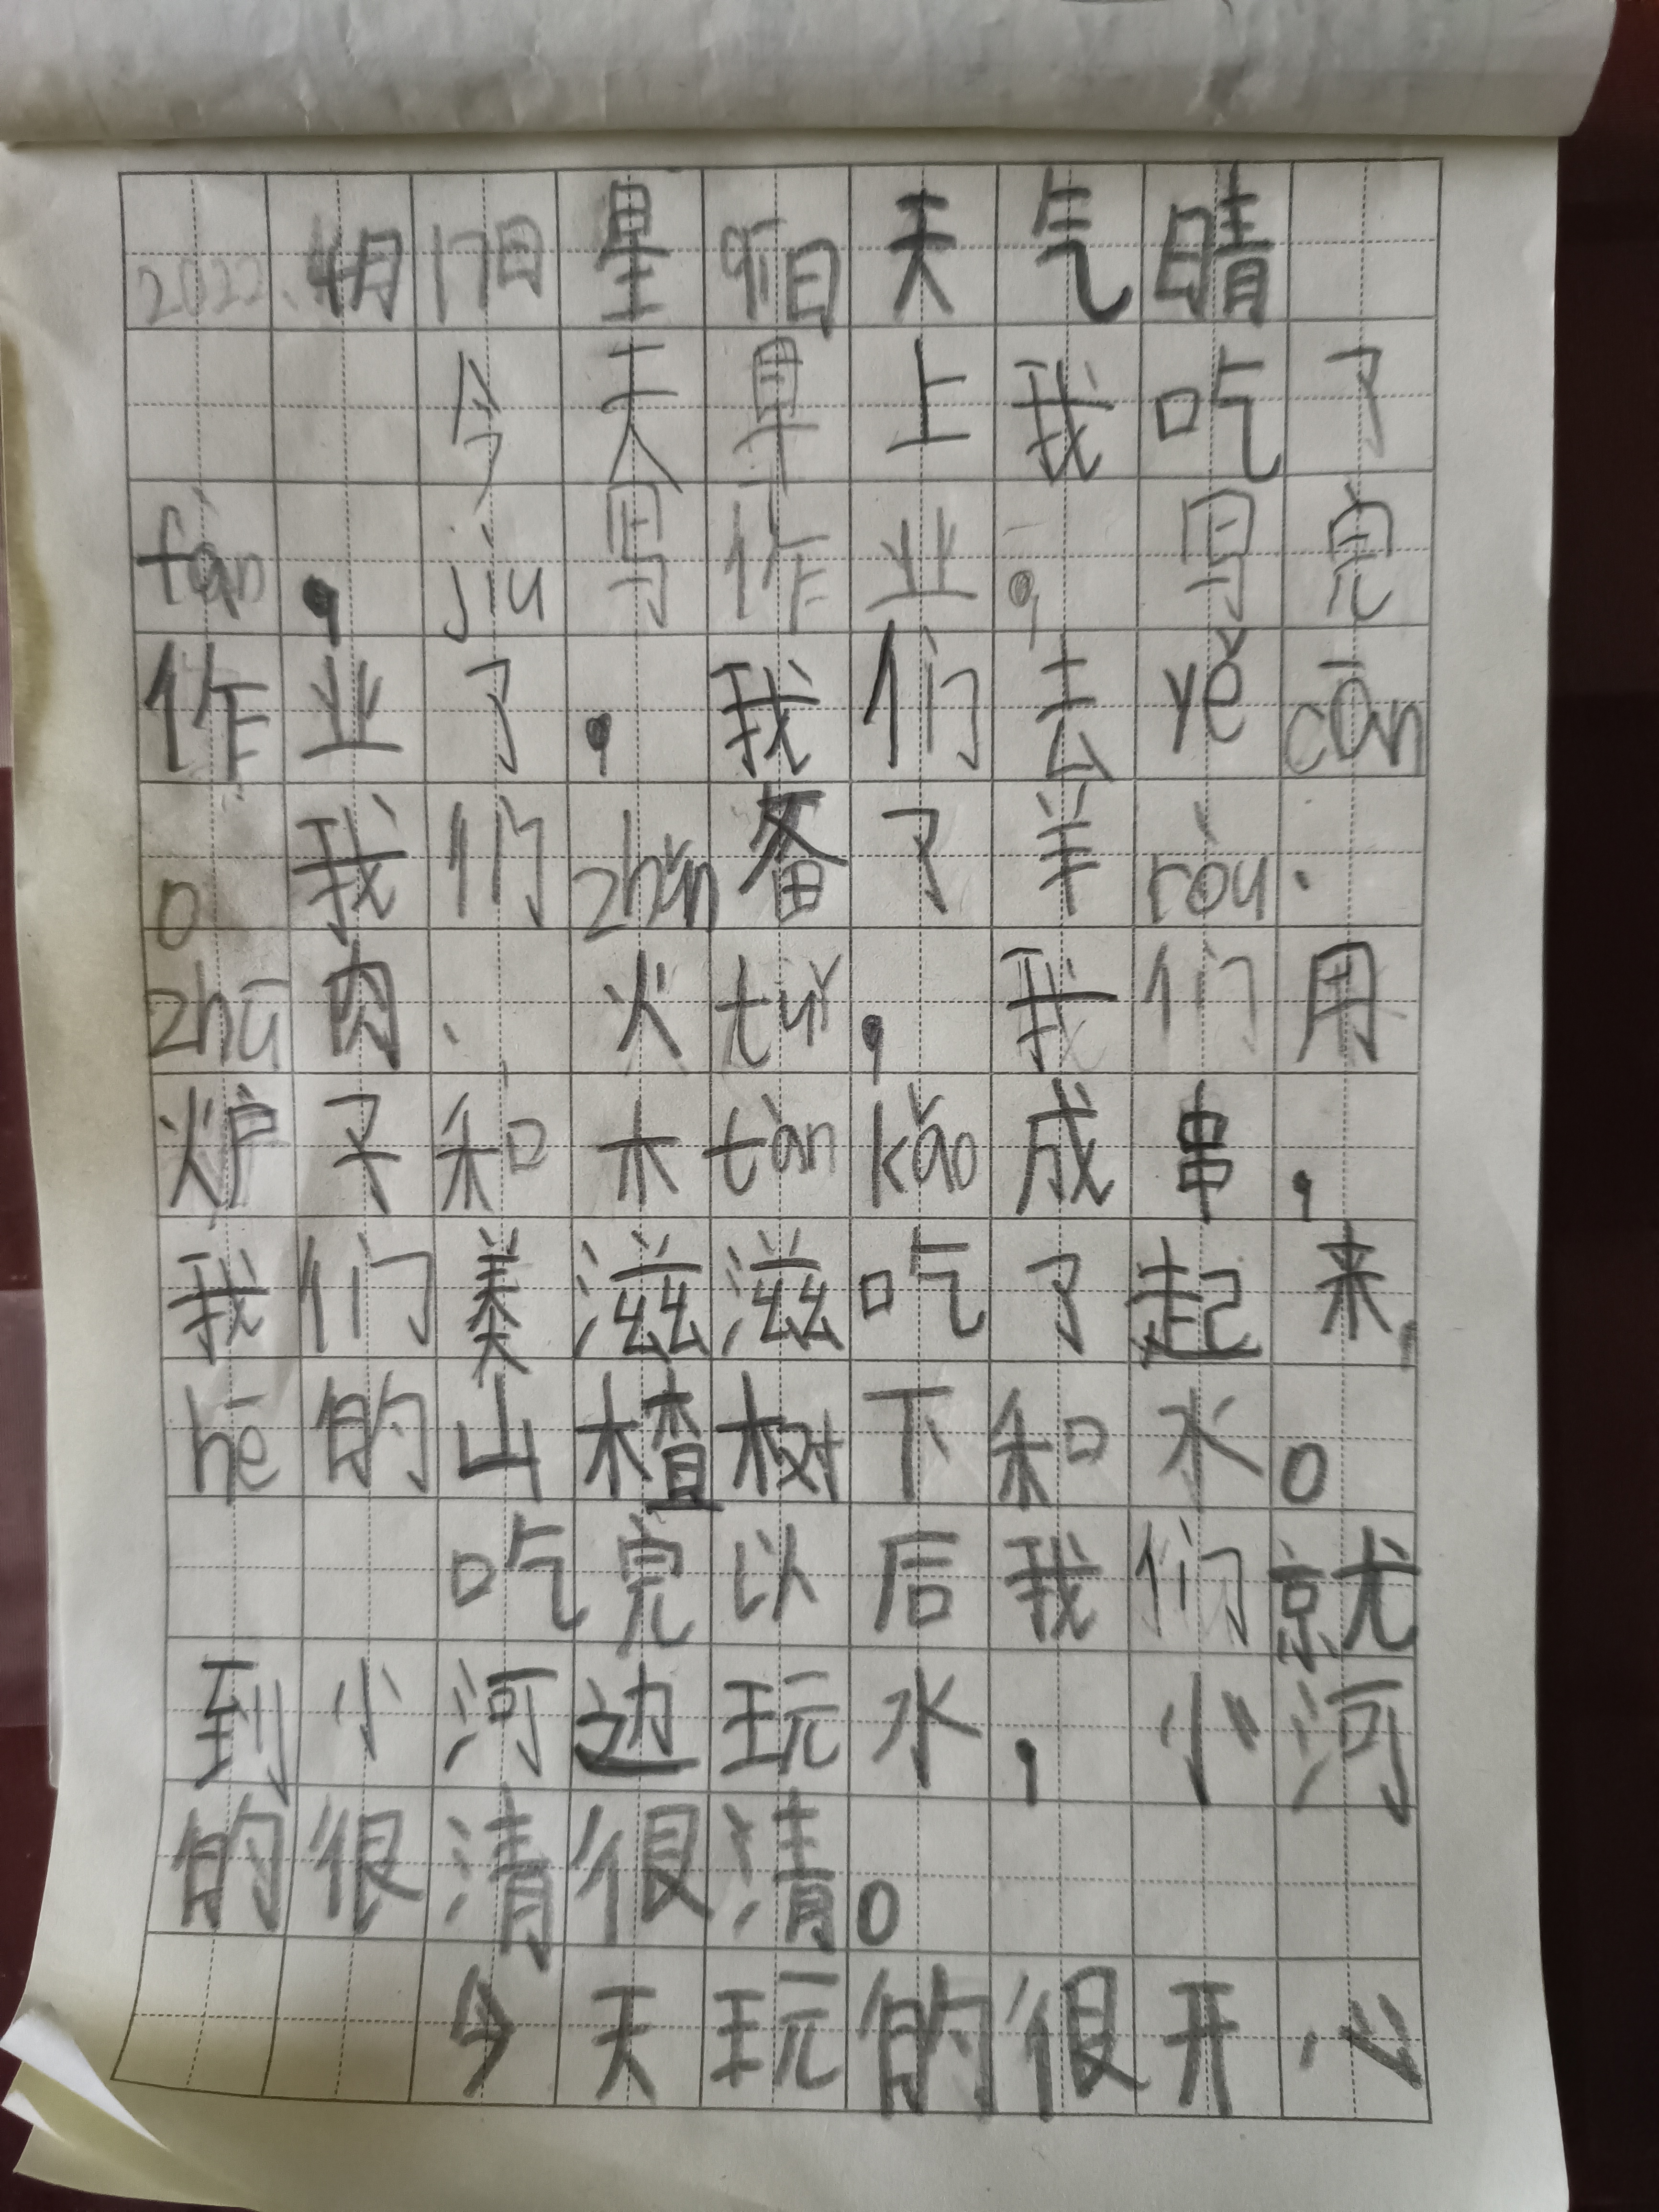 2022.4月17日星qi日天气晴
今天早上我吃了
fàn，jiu写作业。写完
作业了，我们去yě cān
。我们zhǔn备了羊ròu、
zhū肉、火tuǐ，我们用
炉子和木tàn kǎo成串，
我们美滋滋吃了起来，
hē的山楂树下和水。
吃完以后我们就
到小河边玩水，小河
的很清很清。
今天玩的很开心